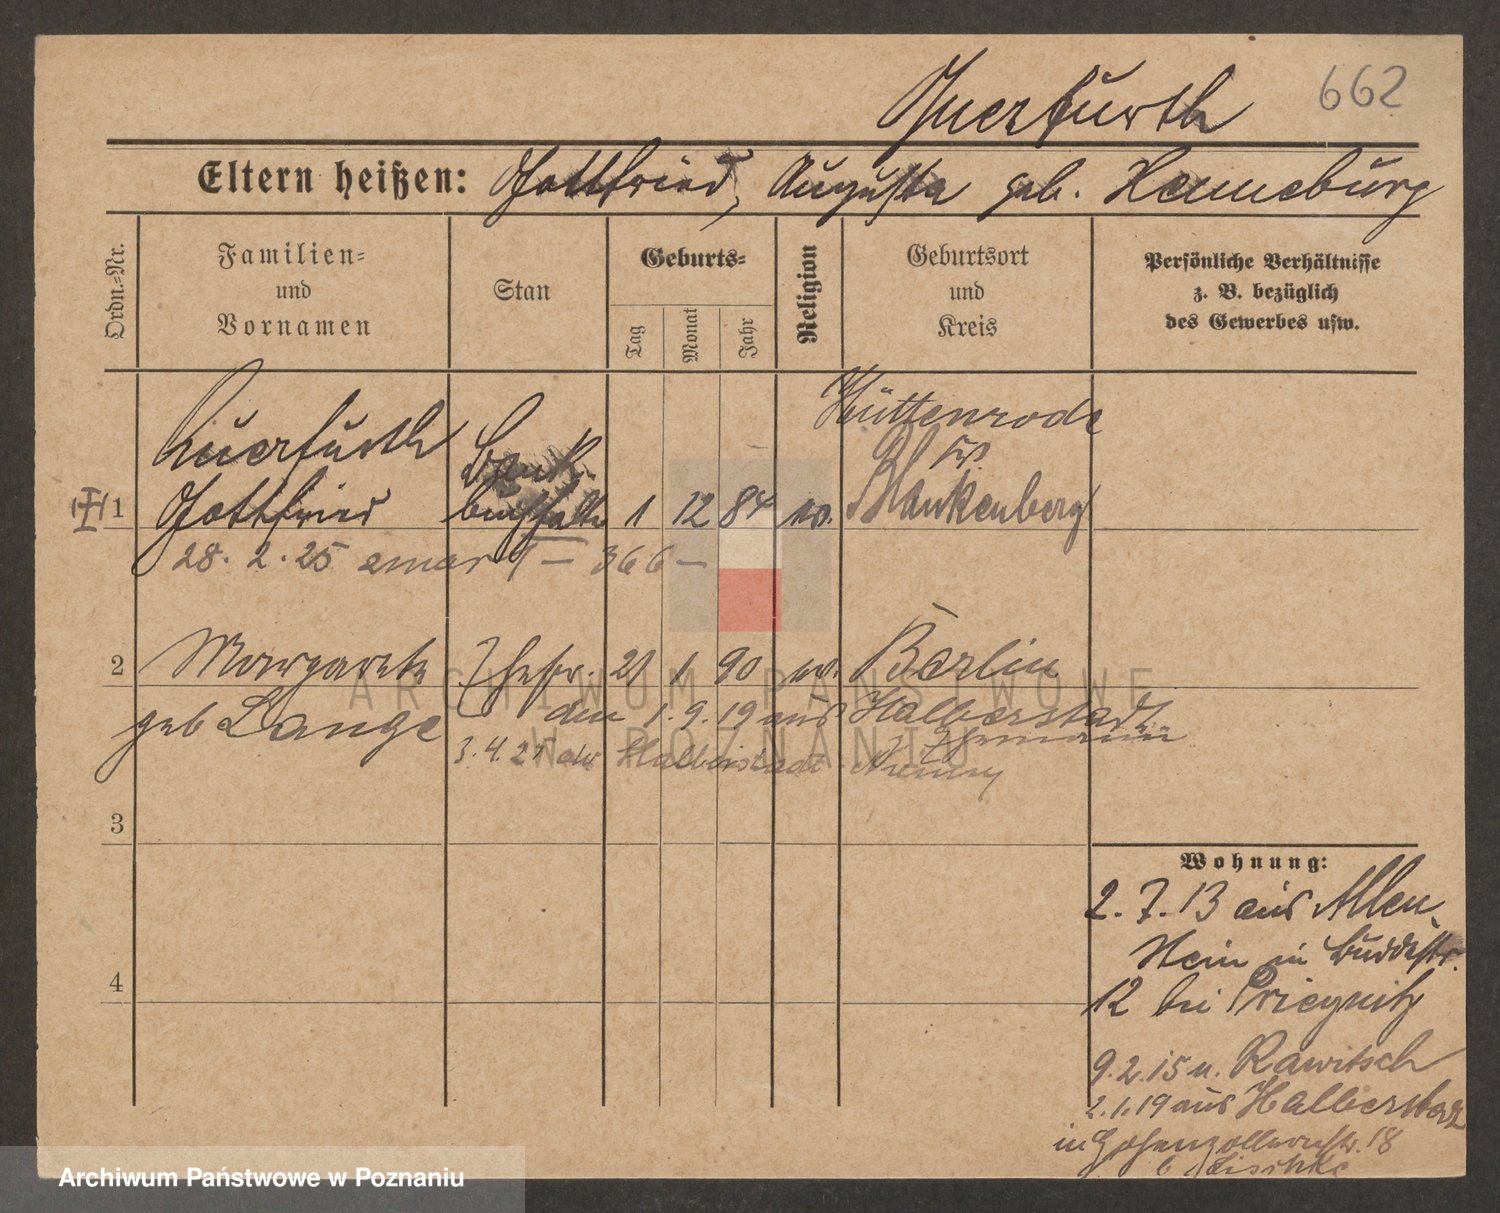 662
Querfurth
Eltern heißen: Gottfried, Augusta geb. Henneburg
Ordn.-Nr.
Familien-
und
Vornamen
Stan
Geburts-
Tag
Monat
Jahr
Religion
Geburtsort
und
Kreis
Persönliche Verhältnisse
z. B. bezüglich
des Gewerbes usw.
Querfurth
Gottfried
Bank-
buchhalter
1
1 12 84 ev.
Hüttenrode
Krs.
Blankenberg
28. 2. 25 zmarł – 366 –
2
Margarete
geb Lange
Ehefr. 21 1 90 ev. Berlin
den 1.9.19 aus Halberstadt
3.4.25 Halberstadt Ehemann
Niemcy
3
4
Wohnung:
2.7.13 aus Allen-
stein in Buddestr.
12 bei Priegnitz
9.2.15 n. Rawitsch
2.1.19 aus Halberstadt
in Hohenzollernstr. 18
b.
ARCHIWUM PAŃSTWOWE
W POZNANIU
Archiwum Państwowe w Poznaniu